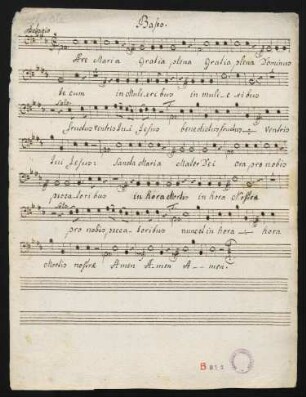 Basso.
Adagio
Ave Maria Gratia plena Gratia plena Dominus
te cum in Muli_eribus in muli_e_ribus
Solo
fructus ventris tui Jesus benedictus fructus ventris
tui Jesus: Sancta Maria Mater Dei ora pro nobis
pecca_toribus in hora Mortis in hora Nostra
Solo
pro nobis pecca_toribus nunc et in hora hora
Mortis nostræ Amen A_men A_ _men.